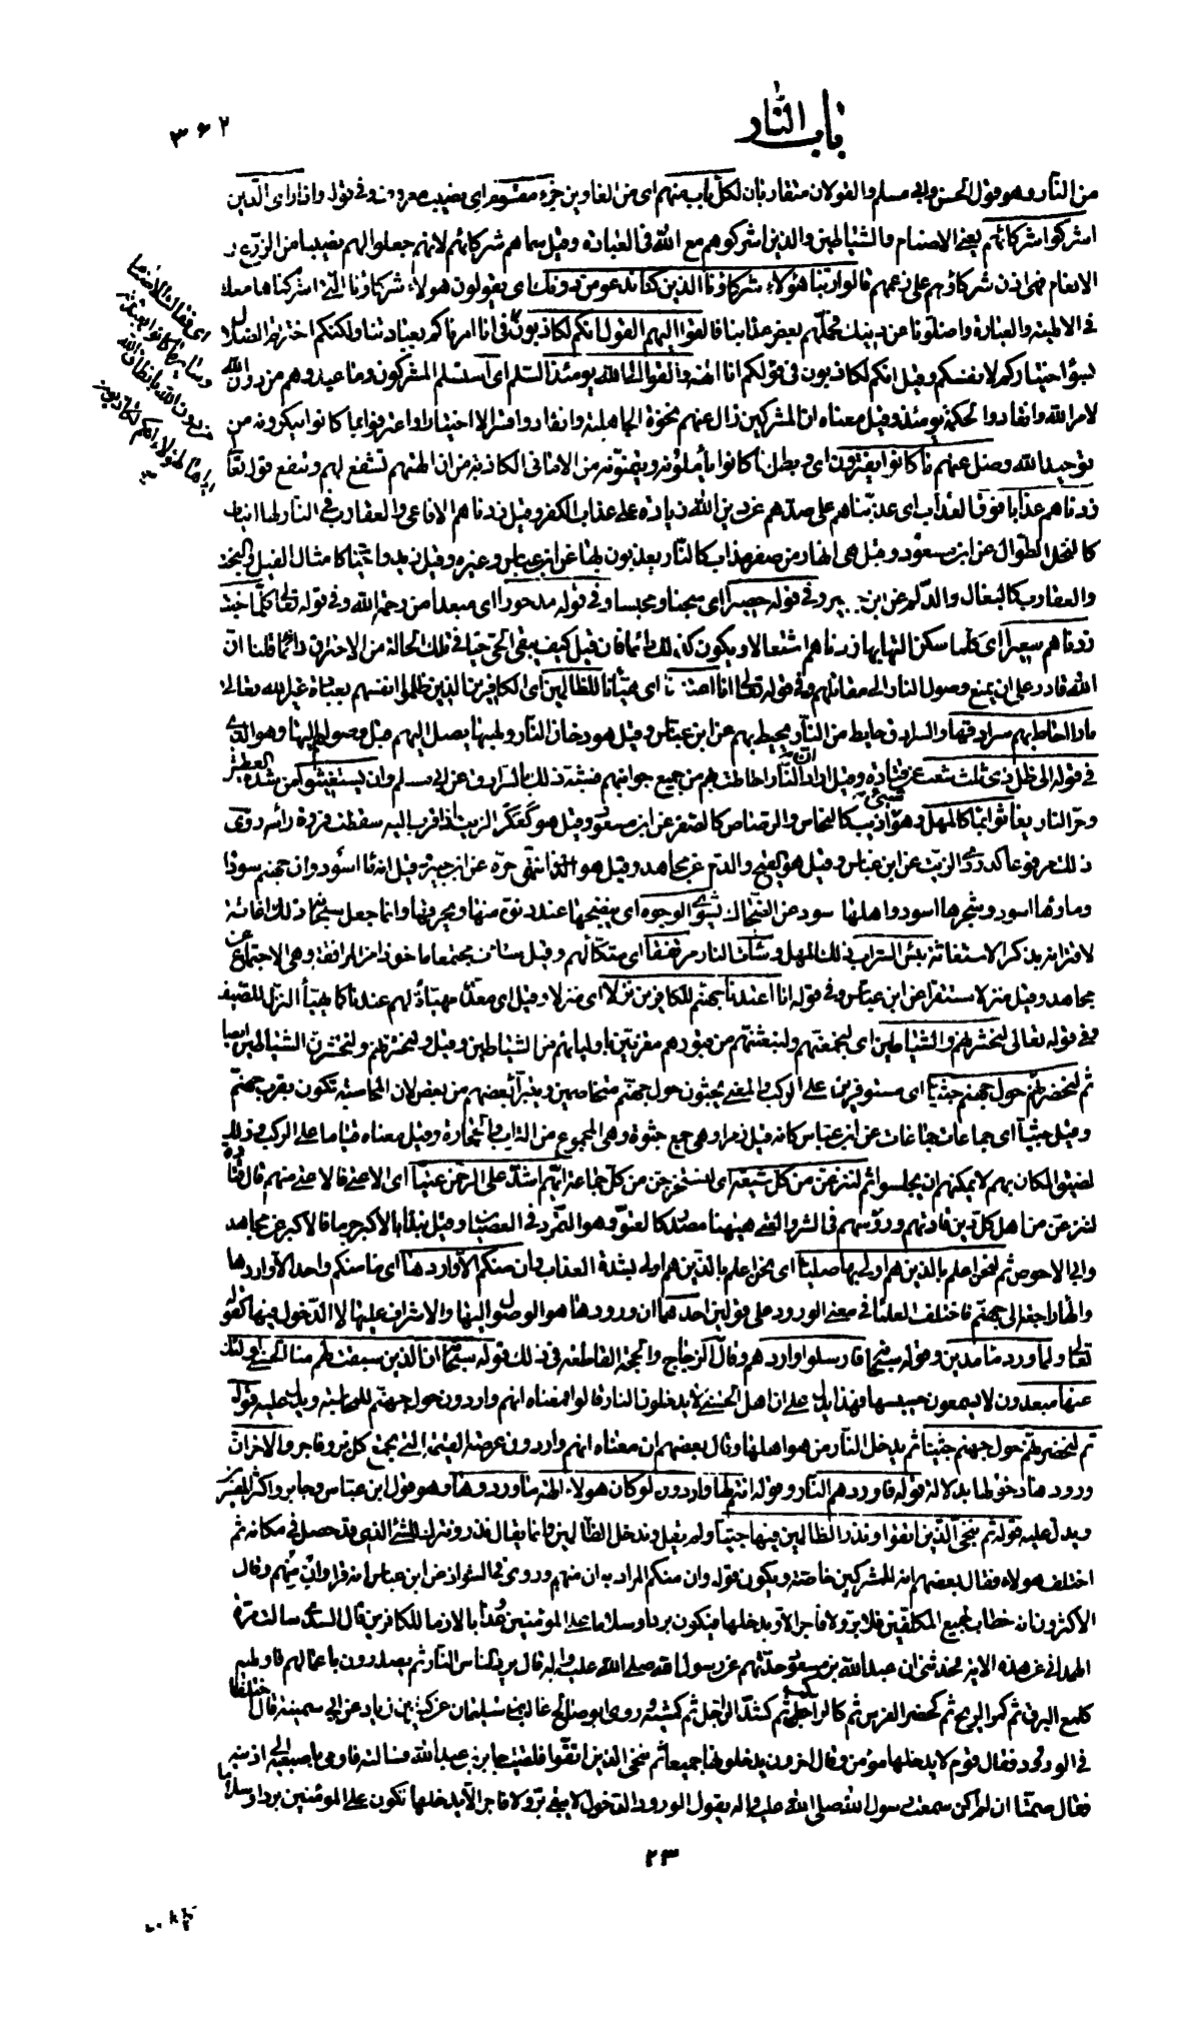 باب النار
٣٦٢
من النار وهو قول الحسن وابي مسلم والقولان متقاربان لكل باب منهم اي من الغاوين جزء مقسوم اي نصيب معروف وفي قوله واذا راى الذين
اشركوا شركائهم يعني الاصنام والشياطين والذين اشركوهم مع الله في العبادة وقيل سماهم شركائهم لانهم جعلوا لهم نصيبا من الزرع و
الانعام فهي اذن شركاؤهم على زعمهم قالوا ربنا هؤلاء شركاؤنا الذين كنا ندعو من دونك اي يقولون هؤلاء شركاؤنا التي اشركناها معك
في الالهية والعبادة واضلونا عن دينك فحملهم بعض عذابنا فالقوا اليهم القول انكم لكاذبون في انا امرناكم بعبادتنا ولكنكم اخترتم الضلال
بسوء اختياركم لانفسكم وقيل انكم لكاذبون في قولكم انا آلهة والقوا الى الله يومئذ السلم اي استسلم المشركون وما عبدوهم من دون الله
لامر الله وانقادوا لحكمه يومئذ وقيل معناه ان المشركين زال عنهم نخوة الجاهلية وانقادوا قسرا لا اختيارا واعترفوا بما كانوا ينكرونه من
توحيد الله وضل عنهم ما كانوا يفترون اي وبطل ما كانوا يأملونه ويتمنونه من الاماني الكاذبة من ان آلهتهم تشفع لهم وتنفع قوله تعالى
زدناهم عذابا فوق العذاب اي عذبناهم على صدهم عن دين الله زيادة على عذاب الكفر وقيل زدناهم الافاعي والعقارب في النار لها انياب
كالنخل الطوال عن ابن مسعود وقيل هي انهار من صفر مذاب كالنار يعذبون بها عن ابن عباس وغيره وقيل زيدوا حيتا كامثال الفيل والبخت
والعقارب كالبغال والدلم عن ابن جبير وفي قوله حصيرا اي سجنا ومحبسا وفي قوله مدحورا اي مبعدا من رحمة الله وفي قوله تعالى كلما خبت
زدناهم سعيرا اي كلما سكن التهابها زدناهم اشتعالا ويكون كذلك دائما فان قيل كيف يبقى الحي حيا في تلك الحالة من الاحتراق دائما قلنا ان
الله قادر على ان يمنع وصول النار الى مقاتلهم وفي قوله تعالى انا اعتدنا اي هيأنا للظالمين اي الكافرين الذين ظلموا انفسهم بعبادة غير الله تعالى
نارا احاط بهم سرادقها والسرادق حايط من النار يحيط بهم عن ابن عباس وقيل هو دخان النار ولهبها يصل اليهم قبل وصولهم اليها وهو الذي
في قوله الى ظل ذي ثلث شعب عن قتادة وقيل اراد ان النار احاطت بهم من جميع جوانبهم فشبه ذلك بالسرادق عن ابي مسلم وان يستغيثوا من شدة العطش
وحر النار يغاثوا بماء كالمهل وهو شيء اذيب كالنحاس والرصاص كالصفر عن ابن مسعود وقيل هو كعكر الزيت اذا قرب اليه سقطت فروة راسه روي
ذلك مرفوعا كدردي الزيت عن ابن عباس وقيل هو القيح والدم عن مجاهد وقيل هو الذي انتهى حره عن ابن جبير وقيل انه ماء اسود وان جهنم سودا
وماؤها اسود وشجرها اسود واهلها سود عن الضحاك يشوي الوجوه اي ينضجها عند دنوه منها ويحرقها وانما جعل سبحانه ذلك اغاثة
لاقترانه بذكر الاستغاثة بئس الشراب ذلك المهل وساءت النار مرتفقا اي متكأ لهم وقيل ساءت مجتمعا ماخوذا من المرافقة وهي الاجتماع عن
مجاهد وقيل منزلا مستقرا عن ابن عباس وفي قوله انا اعتدنا جهنم للكافرين نزلا اي منزلا وقيل اي معدة مهيأة لهم عندنا كما يهيأ النزل للضيف
وفي قوله تعالى لنحشرنهم والشياطين اي لنجمعنهم ولنبعثنهم من قبورهم مقرنين باوليائهم من الشياطين وقيل ولنحشرنهم ولنحشرن الشياطين ايضا
ثم لنحضرنهم حول جهنم جثيا اي مستوفزين على الركب والمعنى يجثون حول جهنم متخاصمين ويتبرأ بعضهم من بعض لان المحاسبة تكون بقرب جهنم
وقيل جثيا اي جماعات جماعات عن ابن عباس كانه قيل زمرا وهي جمع جثوة وهي المجموع من التراب والحجارة وقيل معناه قياما على الركب وذلك
لضيق المكان بهم لا يمكنهم ان يجلسوا ثم لننزعن من كل شيعة اي لنستخرجن من كل جماعة ايهم اشد على الرحمن عتيا اي الاعتى فالاعتى منهم قال قتادة
لننزعن من اهل كل دين قادتهم ورؤسهم في الشر والعتي هيهنا مصدر كالعتو وهو التمرد في العصيان وقيل نبدأ بالاكبر جرما فالاكبر عن مجاهد
وابي الاحوص ثم لنحن اعلم بالذين هم اولى بها صليا اي نحن اعلم بالذين هم اولى بشدة العذاب وان منكم الا واردها اي ما منكم واحد الا واردها
والهاء راجعة الى جهنم فاختلف العلماء في معنى الورود على قولين احدهما ان ورودها هو الوصول اليها والاشراف عليها لا الدخول فيها كقوله
تعالى ولما ورد ماء مدين وقوله سبحانه فارسلوا واردهم وقال الزجاج والحجة القاطعة في ذلك قوله سبحانه ان الذين سبقت لهم منا الحسنى اولئك
عنها مبعدون لا يسمعون حسيسها فهذا يدل على ان اهل الحسنى لا يدخلون النار قالوا فمعناه انهم واردون حول جهنم للمحاسبة ويدل عليه قوله
ثم لنحضرنهم حول جهنم جثيا ثم يدخل النار من هو اهلها وقال بعضهم ان معناه انهم واردون عرصة القيمة التي تجمع كل بر وفاجر والاخر ان
ورودها دخولها بدلالة قوله فاوردهم النار وقوله انتم لها واردون لو كان هؤلاء آلهة ما وردوها وهو قول ابن عباس وجابر واكثر المفسرين
ويدل عليه قوله ثم ننجي الذين اتقوا ونذر الظالمين فيها جثيا ولم يقل وندخل الظالمين وانما يقال نذر ونترك للشئ الذي قد حصل في مكانه ثم
اختلف هؤلاء فقال بعضهم انه للمشركين خاصة ويكون قوله وان منكم المراد به ان منهم وروي في الشواذ عن ابن عباس انه قرا وان منهم وقال
الاكثرون انه خطاب لجميع المكلفين فلا يبقى بر ولا فاجر الا ويدخلها فيكون بردا وسلاما على المؤمنين وعذابا لازما للكافرين قال السدي سالت مرة
الهمداني عن هذه الاية فحدثني ان عبد الله بن مسعود حدثهم عن رسول الله صلى الله عليه واله قال يرد الناس النار ثم يصدرون باعمالهم فاولهم
كلمع البرق ثم كمر الريح ثم كحضر الفرس ثم كالراكب ثم كشد الرجل ثم كمشيه وروى ابو صالح غالب بن سليمان عن كثير بن زياد عن ابي سمينة قال اختلفنا
في الورود فقال قوم لا يدخلها مؤمن وقال اخرون يدخلونها جميعا ثم ينجي الذين اتقوا فلقيت جابر بن عبد الله فسالته فاومى باصبعيه الى اذنيه
فقال صمتا ان لم اكن سمعت رسول الله صلى الله عليه واله يقول الورود الدخول لا يبقى بر ولا فاجر الا يدخلها تكون على المؤمنين بردا وسلاما
اي فقالت الاصنام
وسائر ما كانوا يعبدونه
من دون الله بانطاق الله
اياها لهؤلاء انكم لكاذبون
٢٣